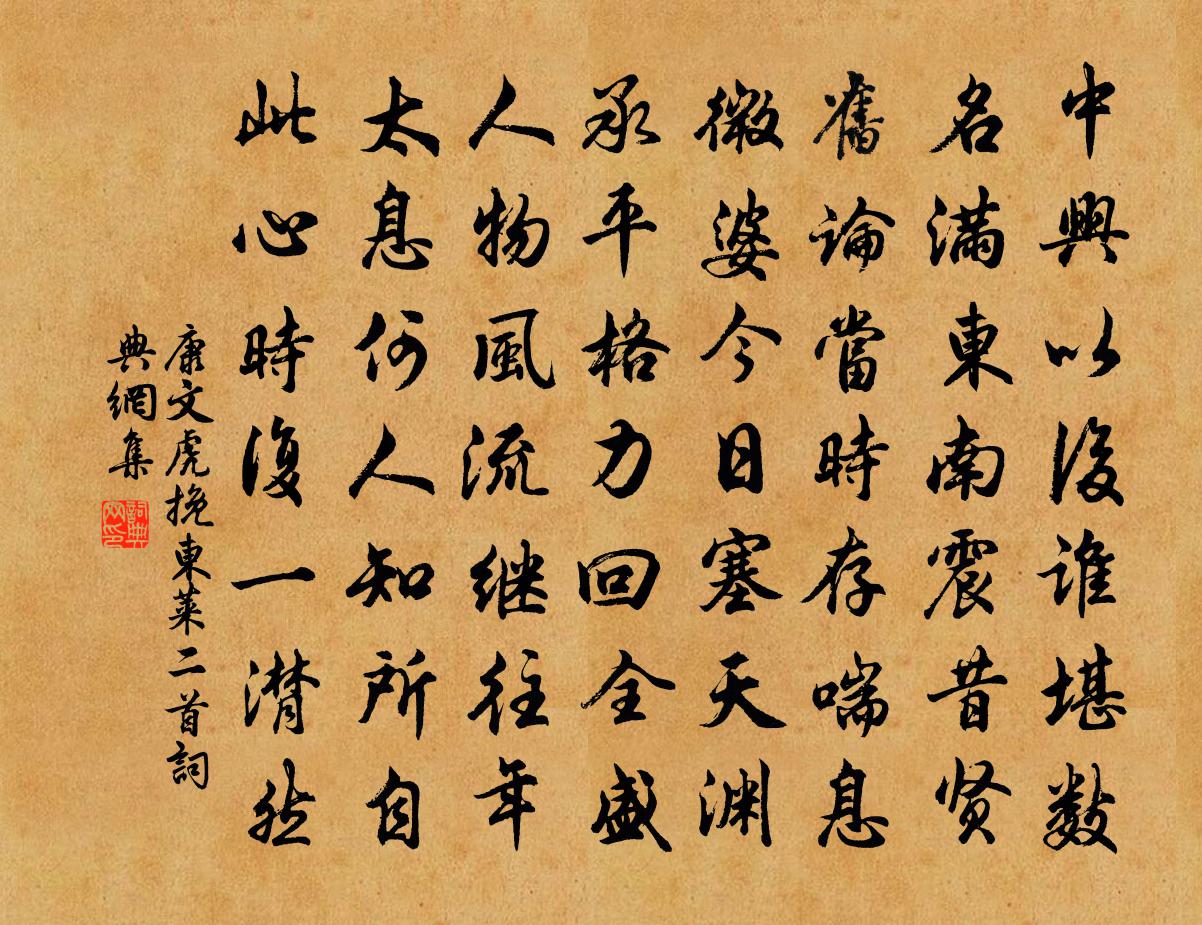 中興以後誰堪数
名滿東南震昔贤
舊論當時存喘息
微婆今日塞天渊
承平格力回全盛
人物風流继往年
太息何人知所自
此心時復一潸然
康文虎挽東莱二首詞
典網集
詞典网印